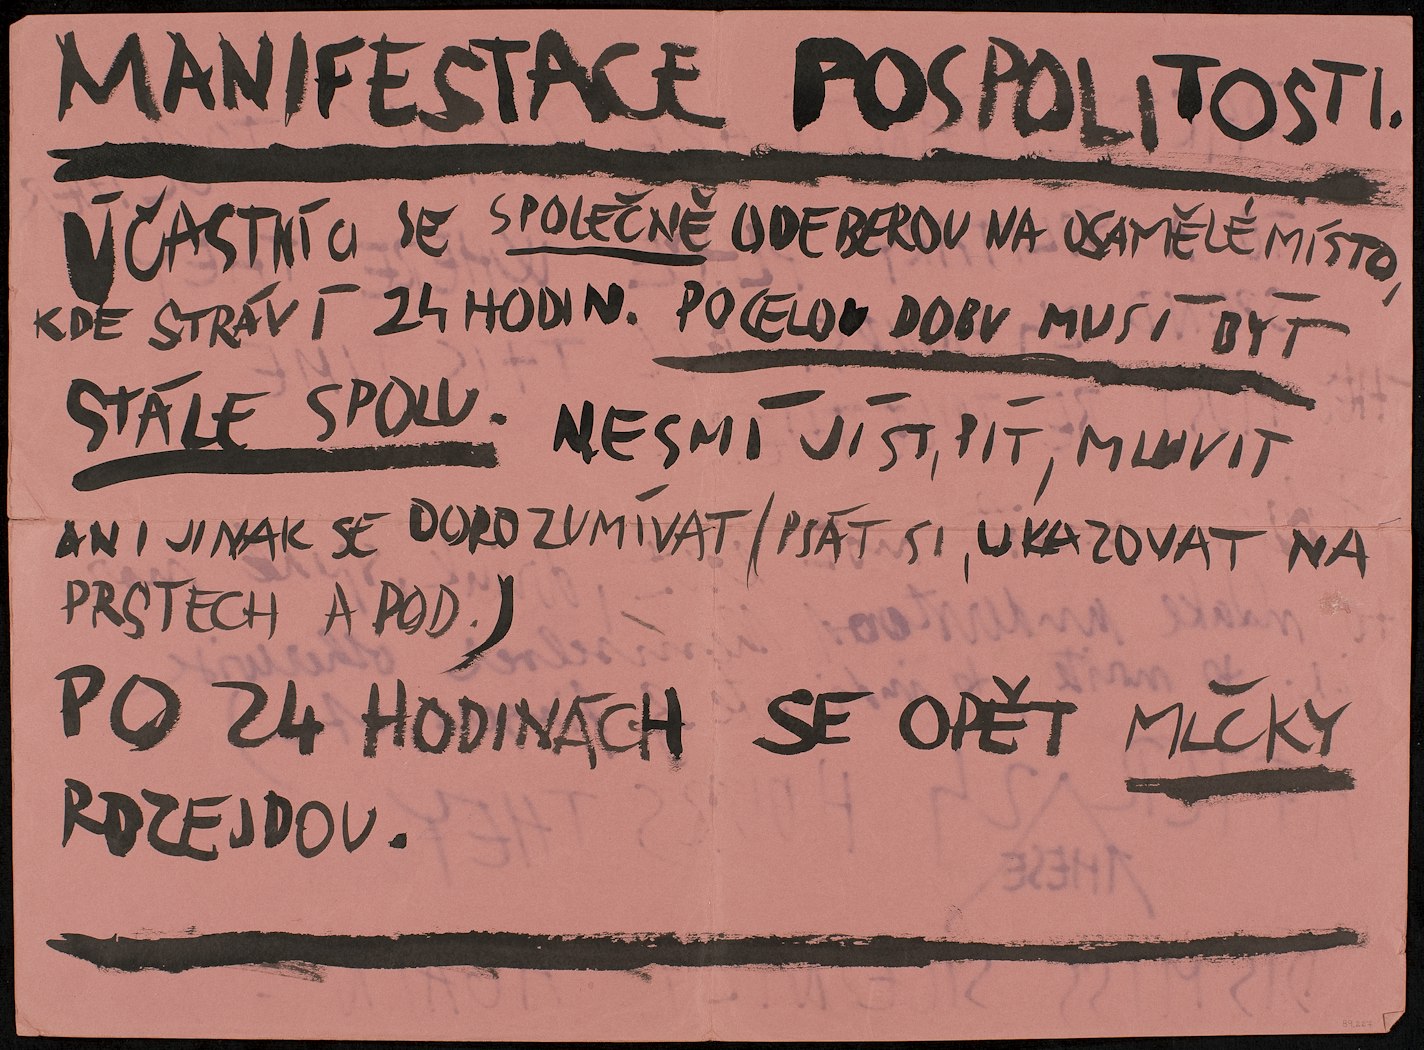 MANIFESTACE POSPOLITOSTI.
ÚČASTNÍCI SE SPOLEČNĚ ODEBEROU NA OSAMĚLÉ MÍSTO,
KDE STRÁVÍ 24 HODIN. PO CELOU DOBU MUSÍ BÝT
STÁLE SPOLU. NESMÍ JÍST, PÍT, MLUVIT
ANI JINAK SE DOROZUMÍVAT / PSÁT SI, UKAZOVAT NA
PRSTECH A POD.)
PO 24 HODINÁCH SE OPĚT MLČKY
ROZEJDOU.
89.227